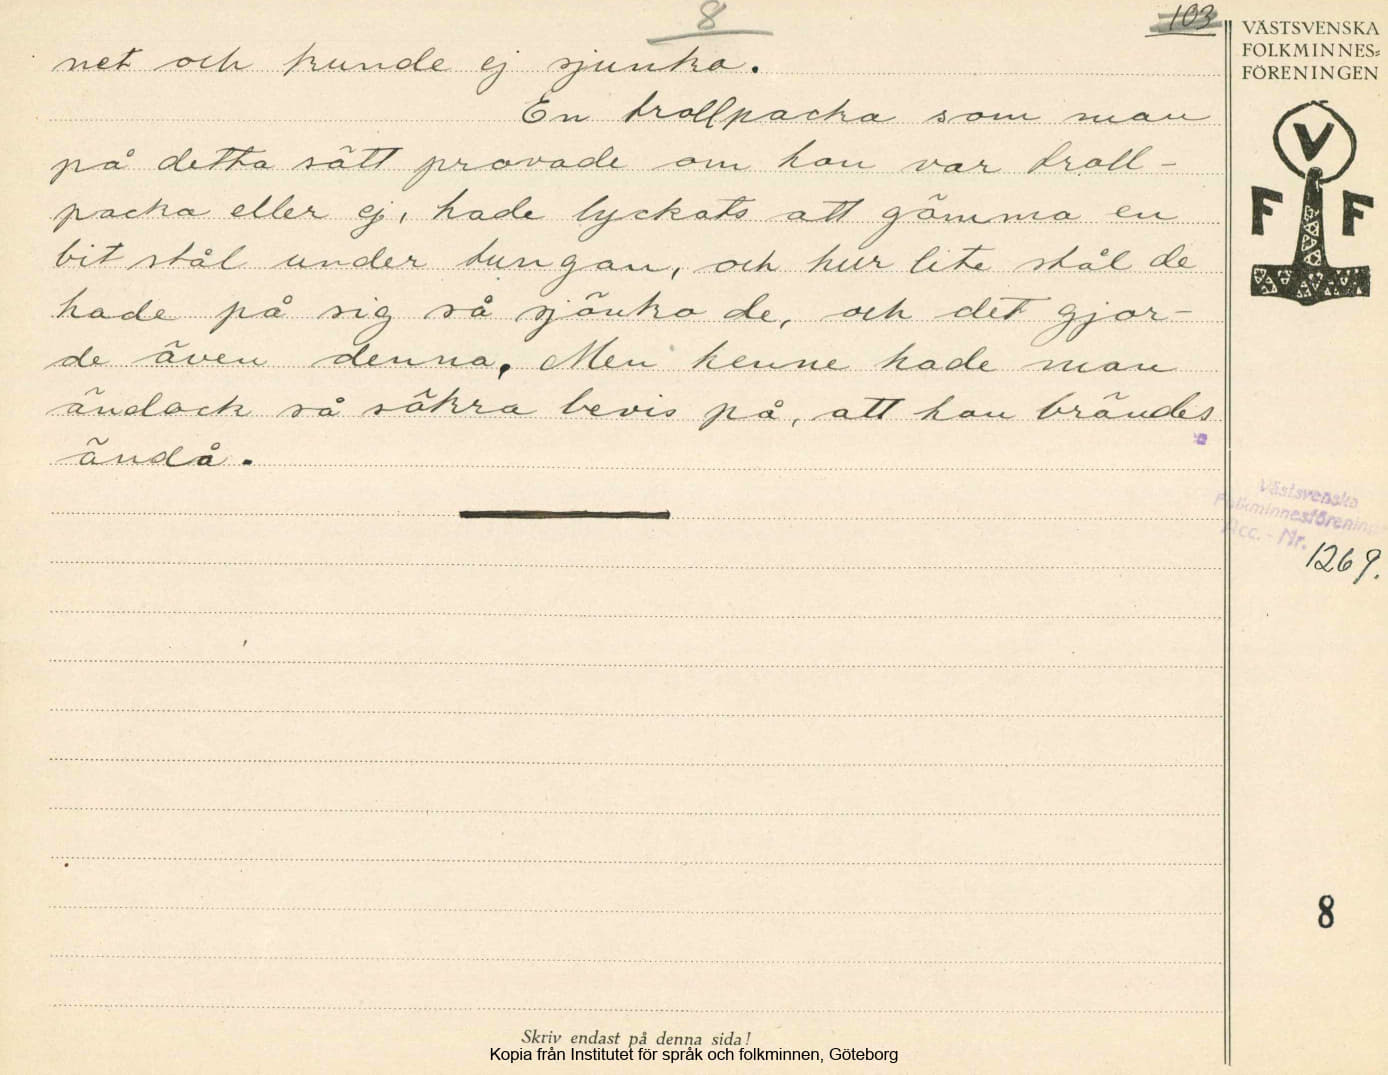 8
103
VÄSTSVENSKA
FOLKMINNES-
FÖRENINGEN
V
F F
net och kunde ej sjunka.
En trollpacka som man
på detta sätt provade om hon var troll-
packa eller ej, hade lyckats att gömma en
bit stål under tungan, och hur lite stål de
hade på sig så sjönko de, och det gjor-
de även denna. Men henne hade man
ändock så säkra bevis på, att hon brändes
ändå.
Västsvenska
Folkminnesförening
Acc. - Nr.
1269.
8
Skriv endast på denna sida!
Kopia från Institutet för språk och folkminnen, Göteborg